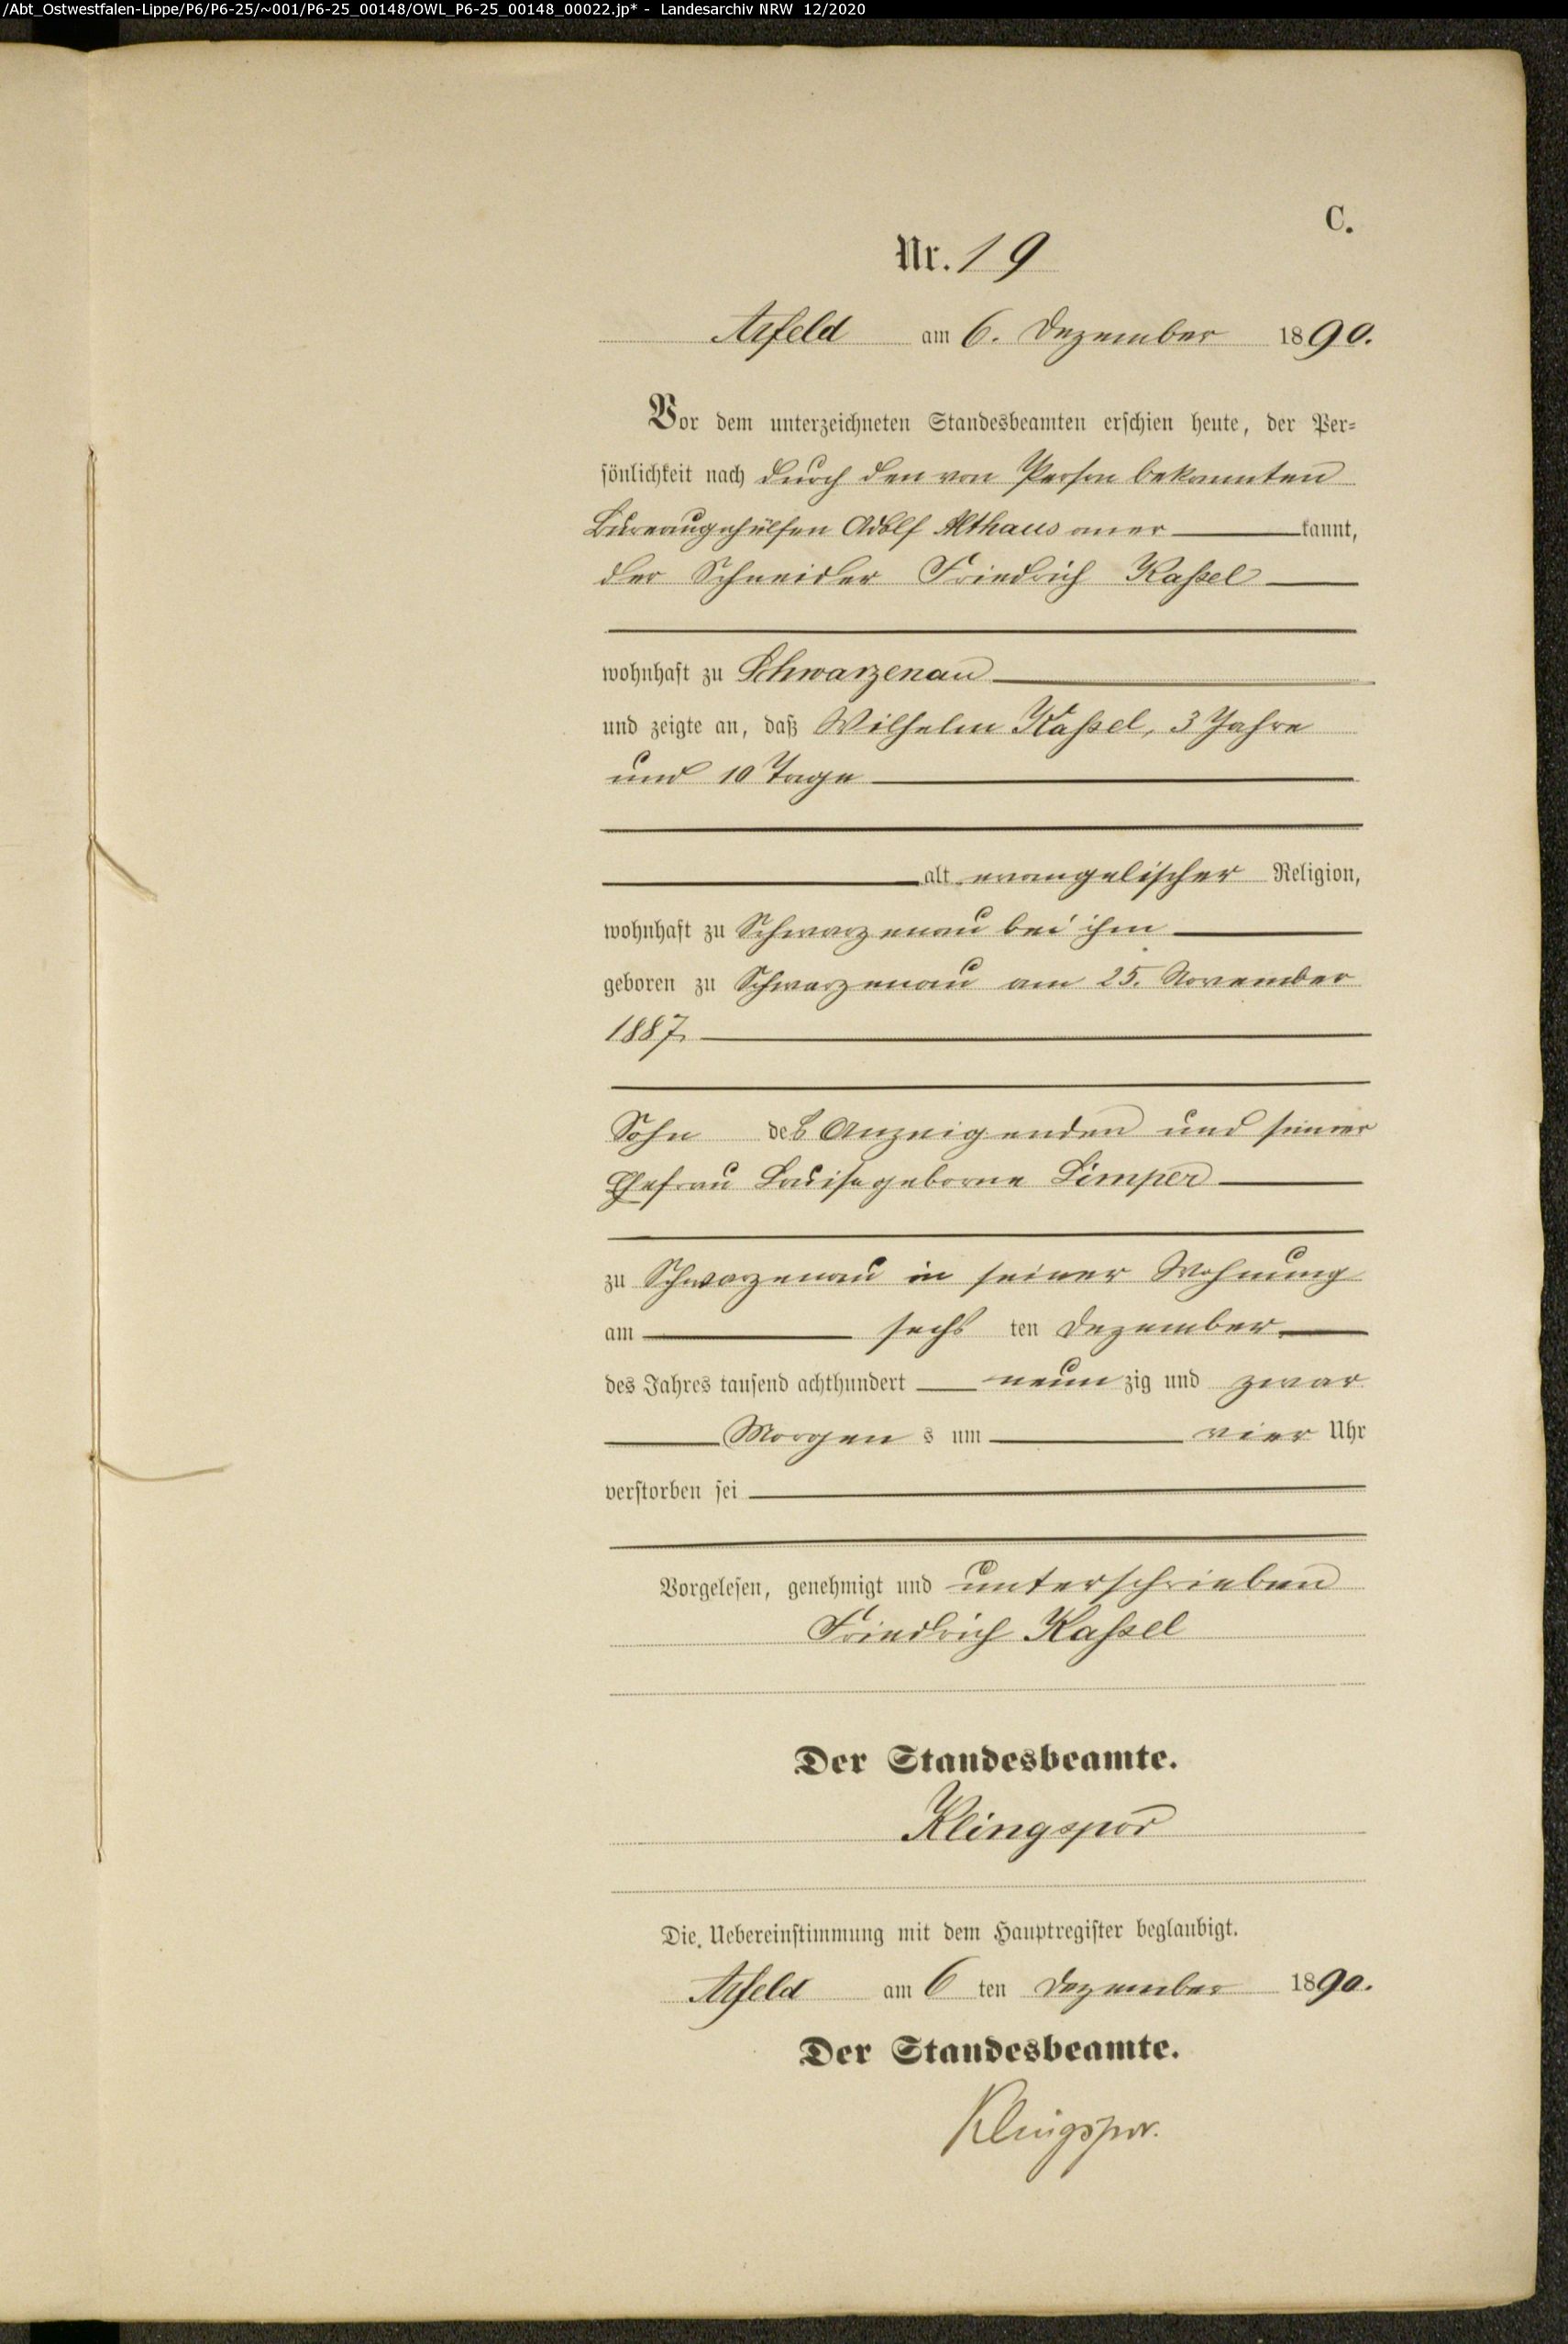 /Abt_Ostwestfalen-Lippe/P6/P6-25/~001/P6-25_00148/OWL_P6-25_00148_00022.jp* - Landesarchiv NRW 12/2020
C.
Nr. 19
Arfeld am 6. Dezember 1890.
Vor dem unterzeichneten Standesbeamten erschien heute, der Per-
sönlichkeit nach durch den von Person bekannten
Bureaugehülfen Adolf Althaus aner kannt,
der Schneider Friedrich Kaßel
wohnhaft zu Schwarzenau
und zeigte an, daß Wilhelm Kaßel, 3 Jahre
und 10 Tage
alt evangelischer Religion,
wohnhaft zu Schwarzenau bei ihm
geboren zu Schwarzenau am 25. November
1887
Sohn des Anzeigenden und seiner
Ehefrau Louise geborne Limper
zu Schwarzenau in seiner Wohnung
am sechs ten Dezember
des Jahres tausend achthundert neun zig und zwar
Morgen s um vier Uhr
verstorben sei
Vorgelesen, genehmigt und unterschrieben
Friedrich Kaßel
Der Standesbeamte.
Klingspor
Die Uebereinstimmung mit dem Hauptregister beglaubigt.
Arfeld am 6 ten Dezember 1890.
Der Standesbeamte.
Klingspor.